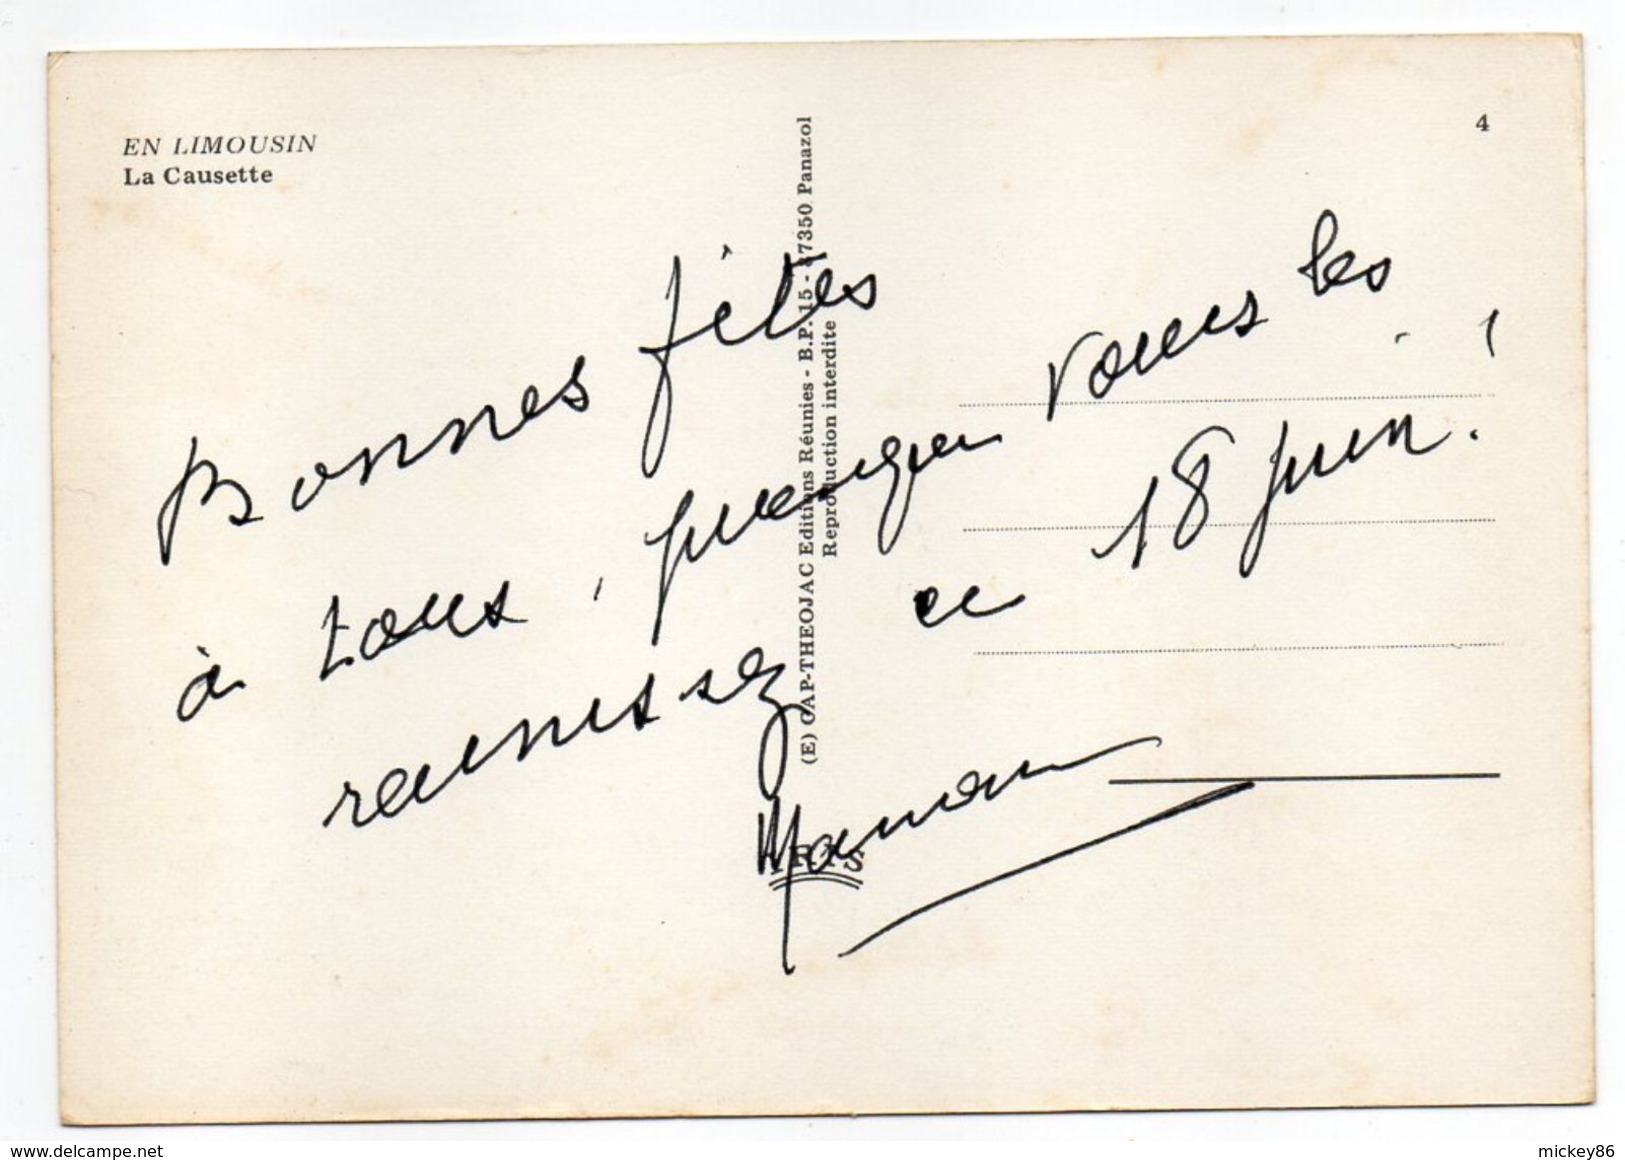 EN LIMOUSIN
La Causette
4
(E) CAP-THEOJAC Editions Réunies - B.P. 15 - 87350 Panazol
Reproduction interdite
Bonnes fêtes
à tous, puisque vous les
réunissez ce 18 juin !
Maman
www.delcampe.net
mickey86